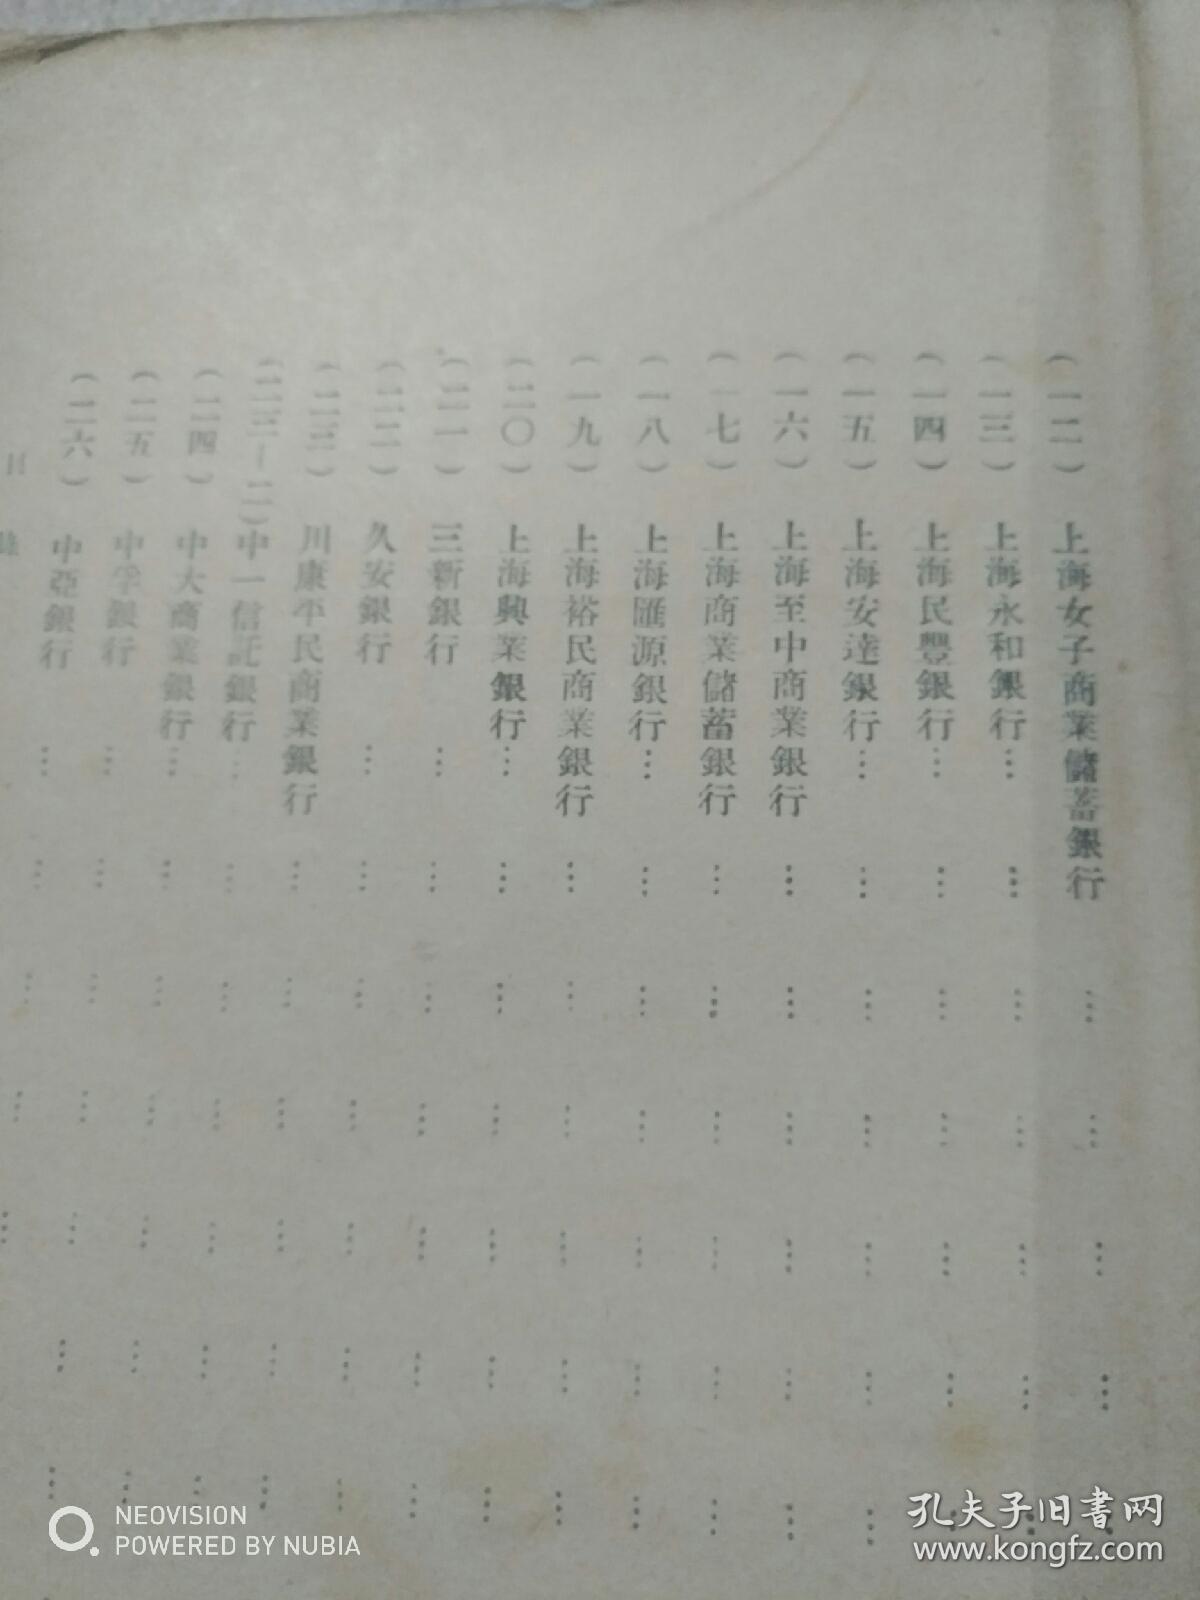 (一二) 上海女子商業儲蓄銀行
(一三) 上海永和銀行
(一四) 上海民豐銀行
(一五) 上海安達銀行
(一六) 上海至中商業銀行
(一七) 上海商業儲蓄銀行
(一八) 上海匯源銀行
(一九) 上海裕民商業銀行
(二〇) 上海興業銀行
(二一) 三新銀行
(二二) 久安銀行
(二三) 川康平民商業銀行
(二三—二) 中一信託銀行
(二四) 中大商業銀行
(二五) 中孚銀行
(二六) 中亞銀行
目錄
NEOVISION
POWERED BY NUBIA
孔夫子旧书网
www.kongfz.com